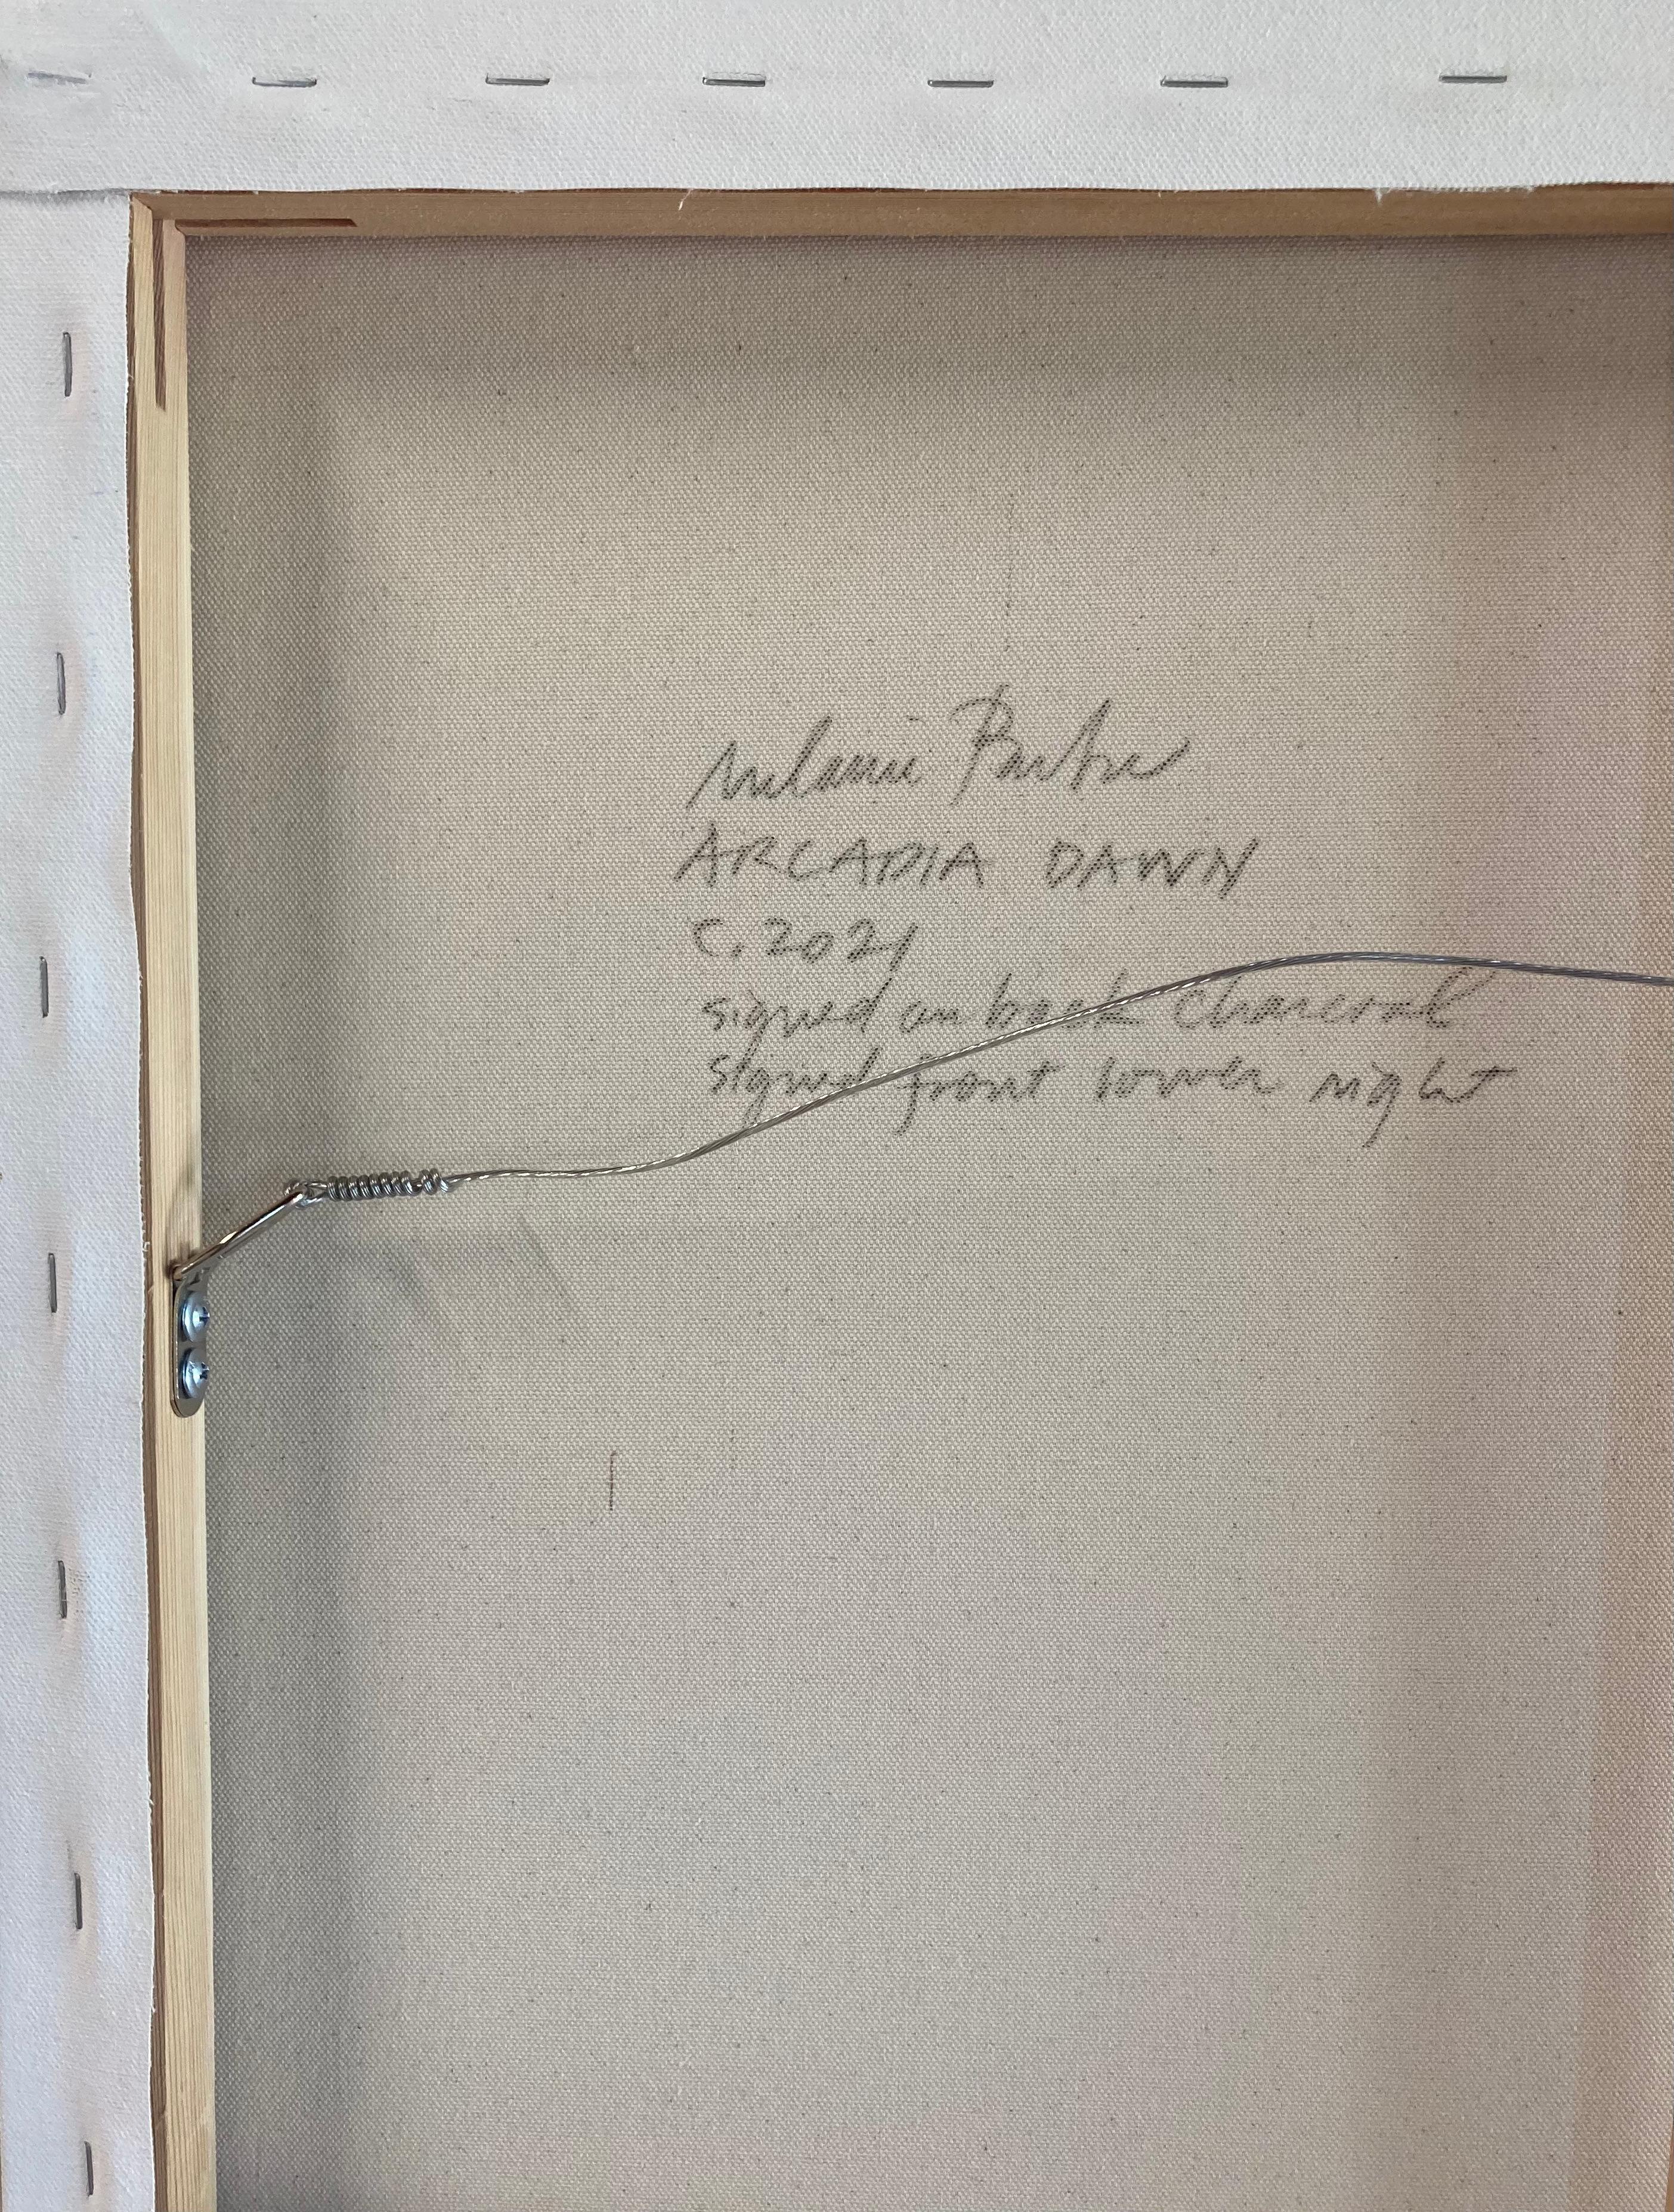 Melanie Parke
ARCADIA DAWN
C. 2021
signed on back charcoal
signed front lower right